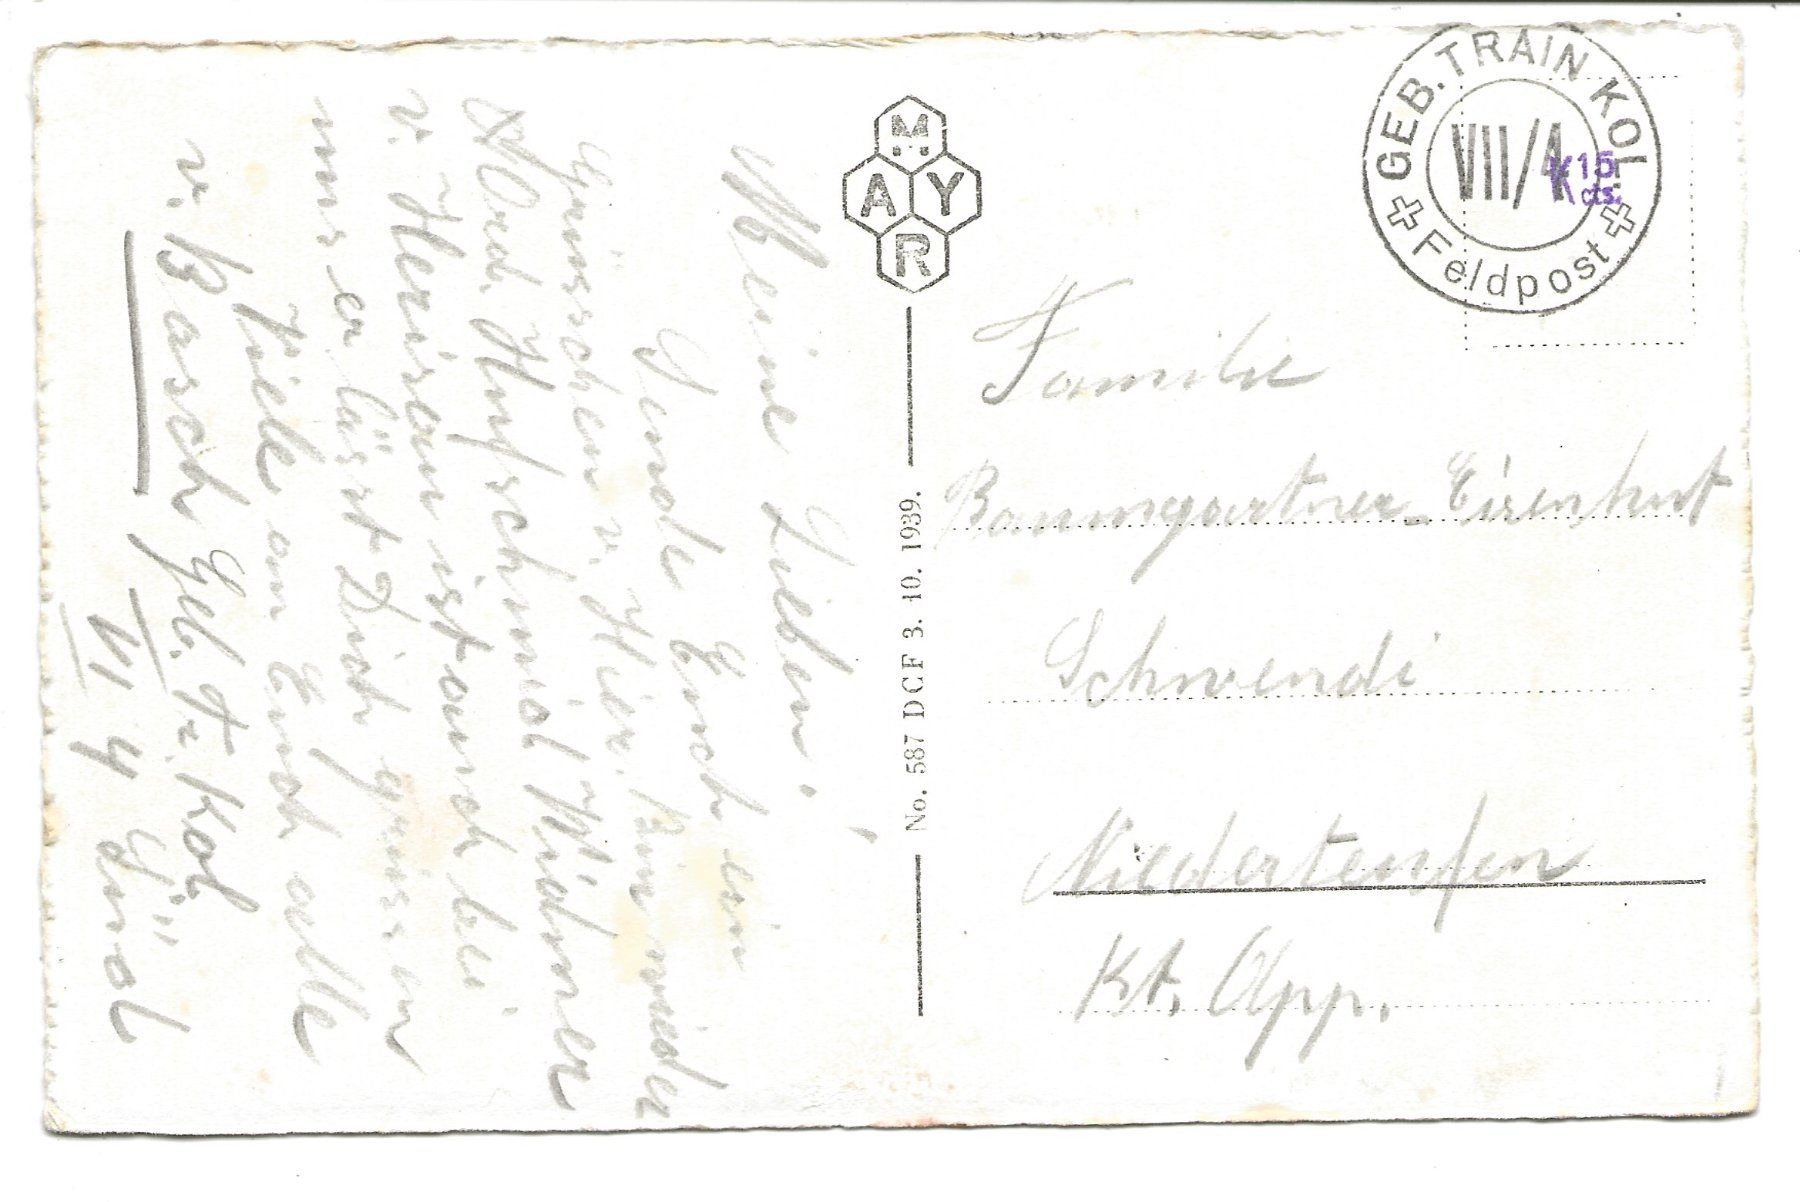 Meine Lieben!
Sende Euch ein
Grüsschen v. Hier. bin wider
Ord. Hufschmid Widmer
v. Herisau ist auch bei
uns er lässt Dich grüssen
Viele an Euch alle
v. Basch Geb. Tr. Kol
VII 4 Gürol
MAYR
No. 587 DCF 3. 10. 1939.
GEB. TRAIN KOL.
VII/4
Feldpost
K 15
cts.
Familie
Baumgartner-Eisenhut
Schwendi
Niederteufen
Kt. App.